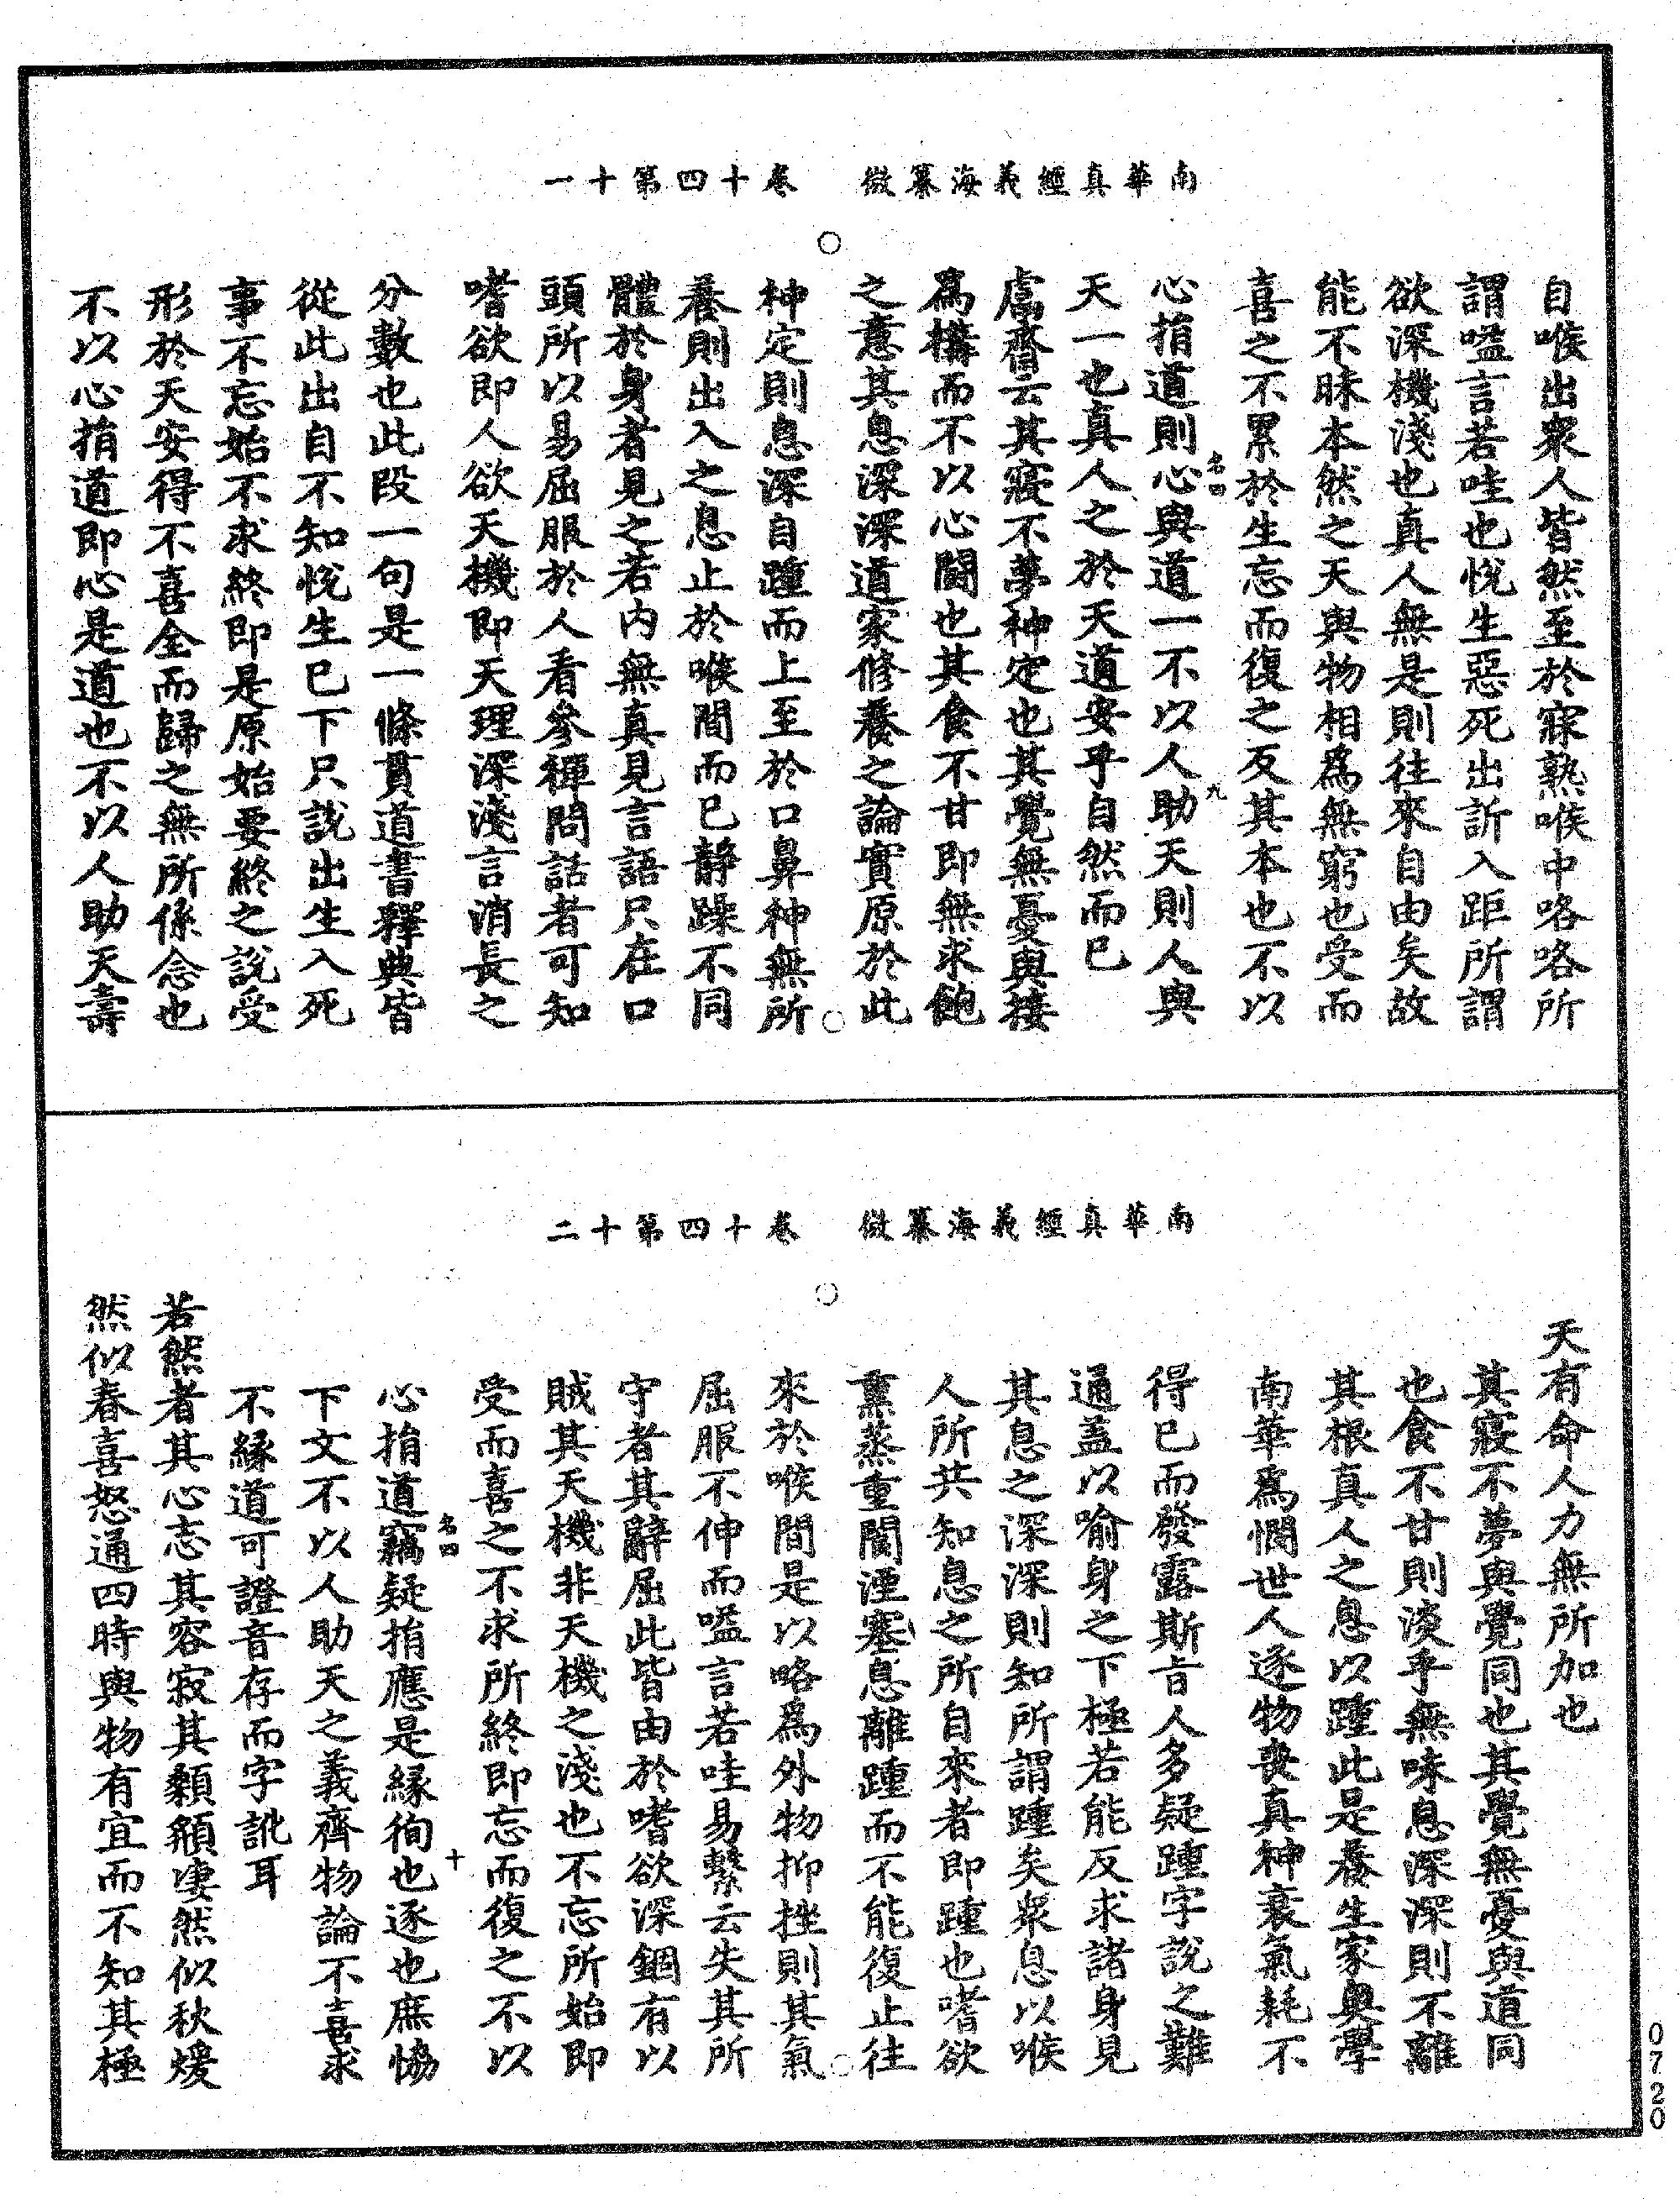 南華真經義海纂微　卷十四第十一
自喉出衆人皆然至於寐熟喉中咯咯所
謂嗌言若哇也悅生惡死出訢入距所謂
欲深機淺也真人無是則往來自由矣故
能不昧本然之天與物相爲無窮也受而
喜之不累於生忘而復之反其本也不以
心揹道則心與道一不以人助天則人與
天一也真人之於天道安乎自然而已
鬳齋云其寢不夢神定也其覺無憂與接
爲構而不以心鬭也其食不甘即無求飽
之意其息深深道家修養之論實原於此
神定則息深自踵而上至於口鼻神無所
養則出入之息止於喉間而已靜躁不同
體於身者見之若內無真見言語只在口
頭所以易屈服於人看參禪問話者可知
嗜欲即人欲天機即天理深淺言消長之
分數也此段一句是一條貫道書釋典皆
從此出自不知悅生已下只說出生入死
事不忘始不求終即是原始要終之說受
形於天安得不喜全而歸之無所係念也
不以心揹道即心是道也不以人助天壽
名四
九
南華真經義海纂微　卷十四第十二
天有命人力無所加也
其寢不夢與覺同也其覺無憂與道同
也食不甘則淡乎無味息深深則不離
其根真人之息以踵此是養生家奧學
南華爲憫世人逐物喪真神衰氣耗不
得已而發露斯旨人多疑踵字說之難
通蓋以喻身之下極若能反求諸身見
其息之深深則知所謂踵矣衆息以喉
人所共知息之所自來者即踵也嗜欲
熏蒸重閡湮塞息離踵而不能復止往
來於喉間是以略爲外物抑挫則其氣
屈服不伸而嗌言若哇易繫云失其所
守者其辭屈此皆由於嗜欲深錮有以
賊其天機非天機之淺也不忘所始即
受而喜之不求所終即忘而復之不以
心揹道竊疑揹應是緣徇也逐也庶協
下文不以人助天之義齊物論不喜求
不緣道可證音存而字訛耳
若然者其心志其容寂其顙頯淒然似秋煖
然似春喜怒通四時與物有宜而不知其極
名四
十
0720